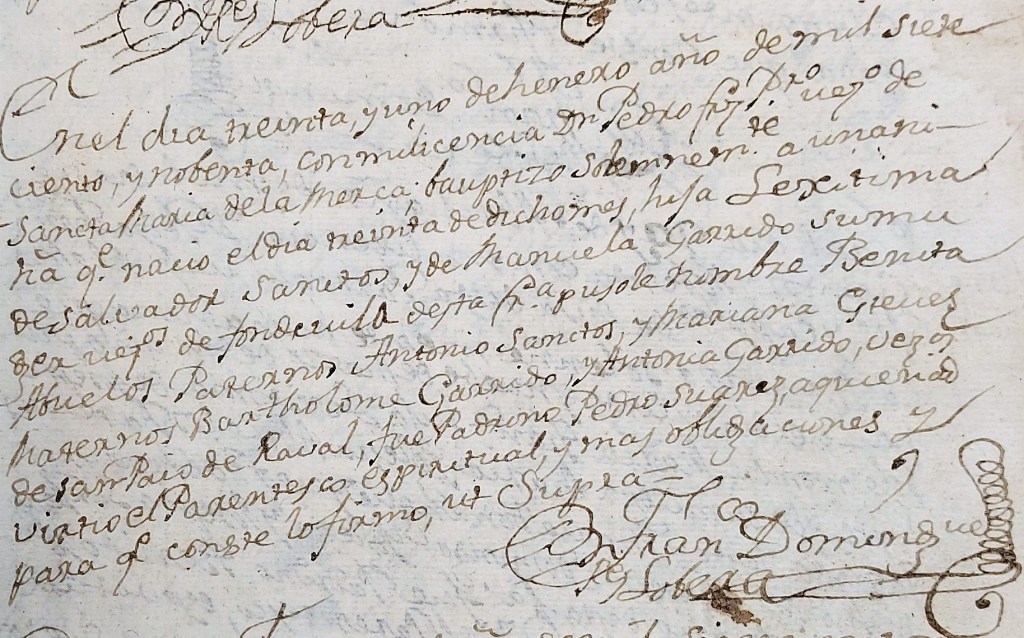 Res Lobera
Enel dia treinta, y uno de henero año de mil siete
ciento, y nobenta, con mi licencia Dn Pedro frz Pro vezo de
Sancta Maria de la Merca, bauptizo solemnemte a una ni-
ña qe nacio el dia treinta de dicho mes, hija Lexitima
de Salvador Sanctos, y de Manuela Garrido su mu
ger vezos de fondevila desta fra pusole nombre Benita
Abuelos Paternos Antonio Sanctos, y Mariana Esteuez
Maternos Bartholome Garrido, y Antonia Garrido, vezos
de san Paio de Raval, fue Padrino Pedro Suarez, a quien ad
virtio el Parentesco espiritual, y mas obligaciones y
para qe conste lo firmo, ut Supra =
Fran Domingue
Res Lobera